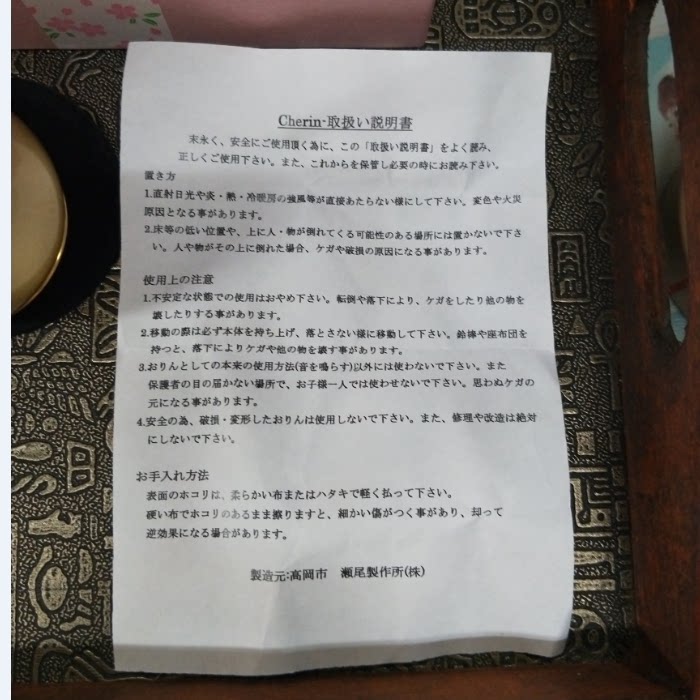 Cherin-取扱い説明書
末永く、安全にご使用頂く為に、この「取扱い説明書」をよく読み、
正しくご使用下さい。また、これからを保管し必要の時にお読み下さい。
置き方
1.直射日光や炎・熱・冷暖房の強風等が直接あたらない様にして下さい。変色や火災
原因となる事があります。
2.床等の低い位置や、上に人・物が倒れてくる可能性のある場所には置かないで下さ
い。人や物がその上に倒れた場合、ケガや破損の原因になる事があります。
使用上の注意
1.不安定な状態での使用はおやめ下さい。転倒や落下により、ケガをしたり他の物を
壊したりする事があります。
2.移動の際は必ず本体を持ち上げ、落とさない様に移動して下さい。鈴棒や座布団を
持つと、落下によりケガや他の物を壊す事があります。
3.おりんとしての本来の使用方法(音を鳴らす)以外には使わないで下さい。また
保護者の目の届かない場所で、お子様一人では使わせないで下さい。思わぬケガの
元になる事があります。
4.安全の為、破損・変形したおりんは使用しないで下さい。また、修理や改造は絶対
にしないで下さい。
お手入れ方法
表面のホコリは、柔らかい布またはハタキで軽く払って下さい。
硬い布でホコリのあるまま擦りますと、細かい傷がつく事があり、却って
逆効果になる場合があります。
製造元:高岡市 瀬尾製作所(株)